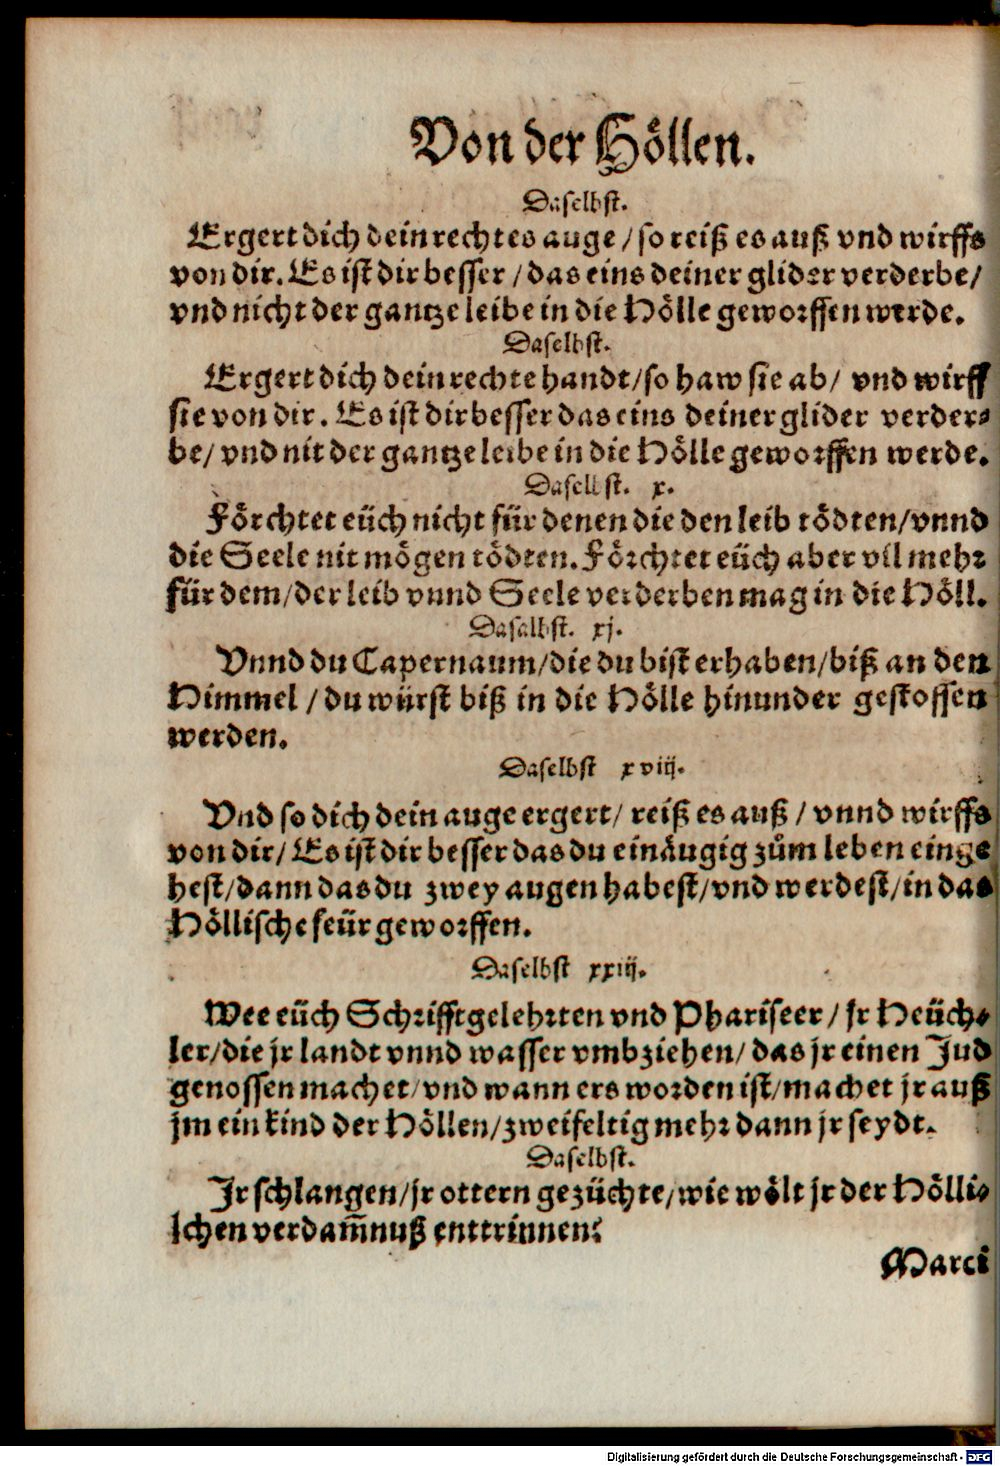 Von der Höllen.
Daselbst.
Ergert dich dein rechtes auge / so reiß es auß vnd wirffs
von dir. Es ist dir besser / das eins deiner glider verderbe /
vnd nicht der gantze leibe in die Hölle geworffen werde.
Daselbst.
Ergert dich dein rechte handt / so haw sie ab / vnd wirff
sie von dir. Es ist dir besser das eins deiner glider verder⸗
be / vnd nit der gantze leibe in die Hölle geworffen werde.
Daselbst. x.
Förchtet eüch nicht für denen die den leib tödten / vnnd
die Seele nit mögen tödten. Förchtet eüch aber vil mehr
für dem / der leib vnnd Seele verderben mag in die Höll.
Daselbst. xj.
Vnnd du Capernaum / die du bist erhaben / biß an den
Himmel / du würst biß in die Hölle hinunder gestossen
werden.
Daselbst xviij.
Vnd so dich dein auge ergert / reiß es auß / vnnd wirffs
von dir / Es ist dir besser das du einäugig zům leben einge
hest / dann das du zwey augen habest / vnd werdest / in das
Höllische feür geworffen.
Daselbst xxiij.
Wee eüch Schrifftgelehrten vnd Phariseer / jr Heüch⸗
ler / die jr landt vnnd wasser vmbziehen / das jr einen Jud
genossen machet / vnd wann ers worden ist / machet jr auß
jm ein kind der Höllen / zweifeltig mehr dann jr seydt.
Daselbst.
Jr schlangen / jr ottern gezüchte / wie wölt jr der Hölli⸗
schen verdam̃nuß enttrinnen?
Marci
Digitalisierung gefördert durch die Deutsche Forschungsgemeinschaft - DFG